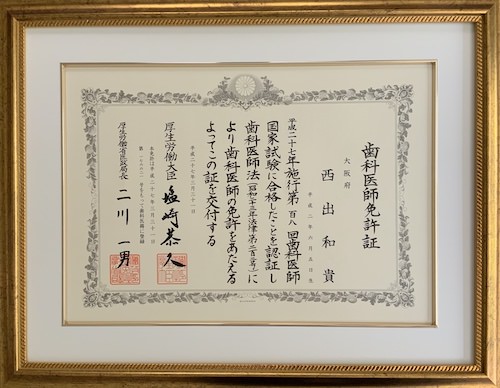 歯科医師免許証
大阪府
西出和貴
平成二年六月五日生
平成二十七年施行第百八回歯科医師
国家試験に合格したことを認証し
歯科医師法(昭和二十三年法律第二百二号)に
より歯科医師の免許をあたえる
よってこの証を交付する
平成二十七年三月三十一日
厚生労働大臣 塩崎恭久
厚生労働省医政局長 二川一男